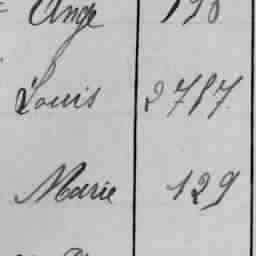 Ange 190
Louis 2787
Marie 129